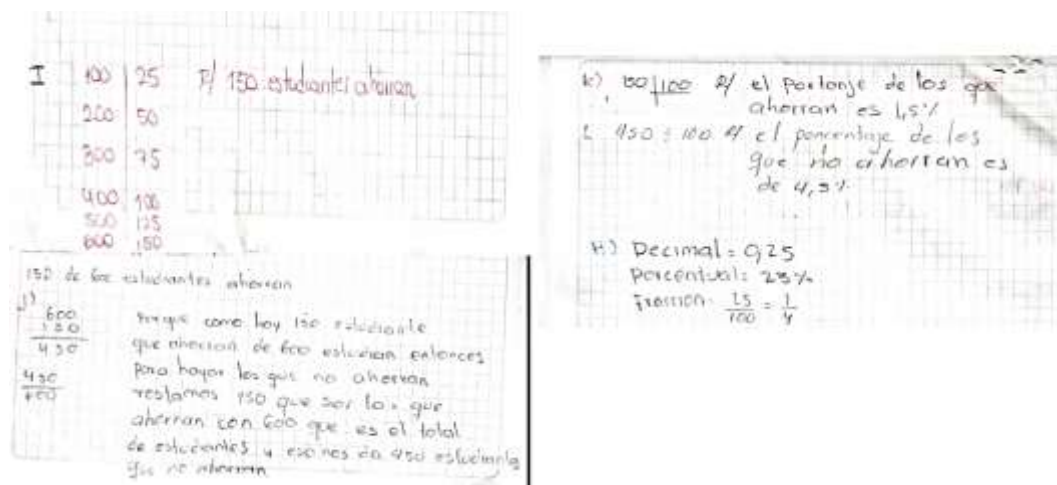 I 100 | 25 R/ 150 estudiantes ahorran
200 | 50
300 | 75
400 | 100
500 | 125
600 | 150
150 de 600 estudiantes ahorran
J)
600
150
450
450
600
Porque como hay 150 estudiante
que ahorran de 600 estudian entonces
Para hayar los que no ahorran
restamos 150 que son los que
ahorran con 600 que es el total
de estudiantes y eso nos da 450 estudiantes
que no ahorran
k) 150 | 100 R/ el de los que
ahorran es 1,5%
L 450 ÷ 100 R/ el de los
que no ahorran es
de 4,5%
H) Decimal = 0,25
Porcentual: 25%
Fracción: 25/100 = 1/4